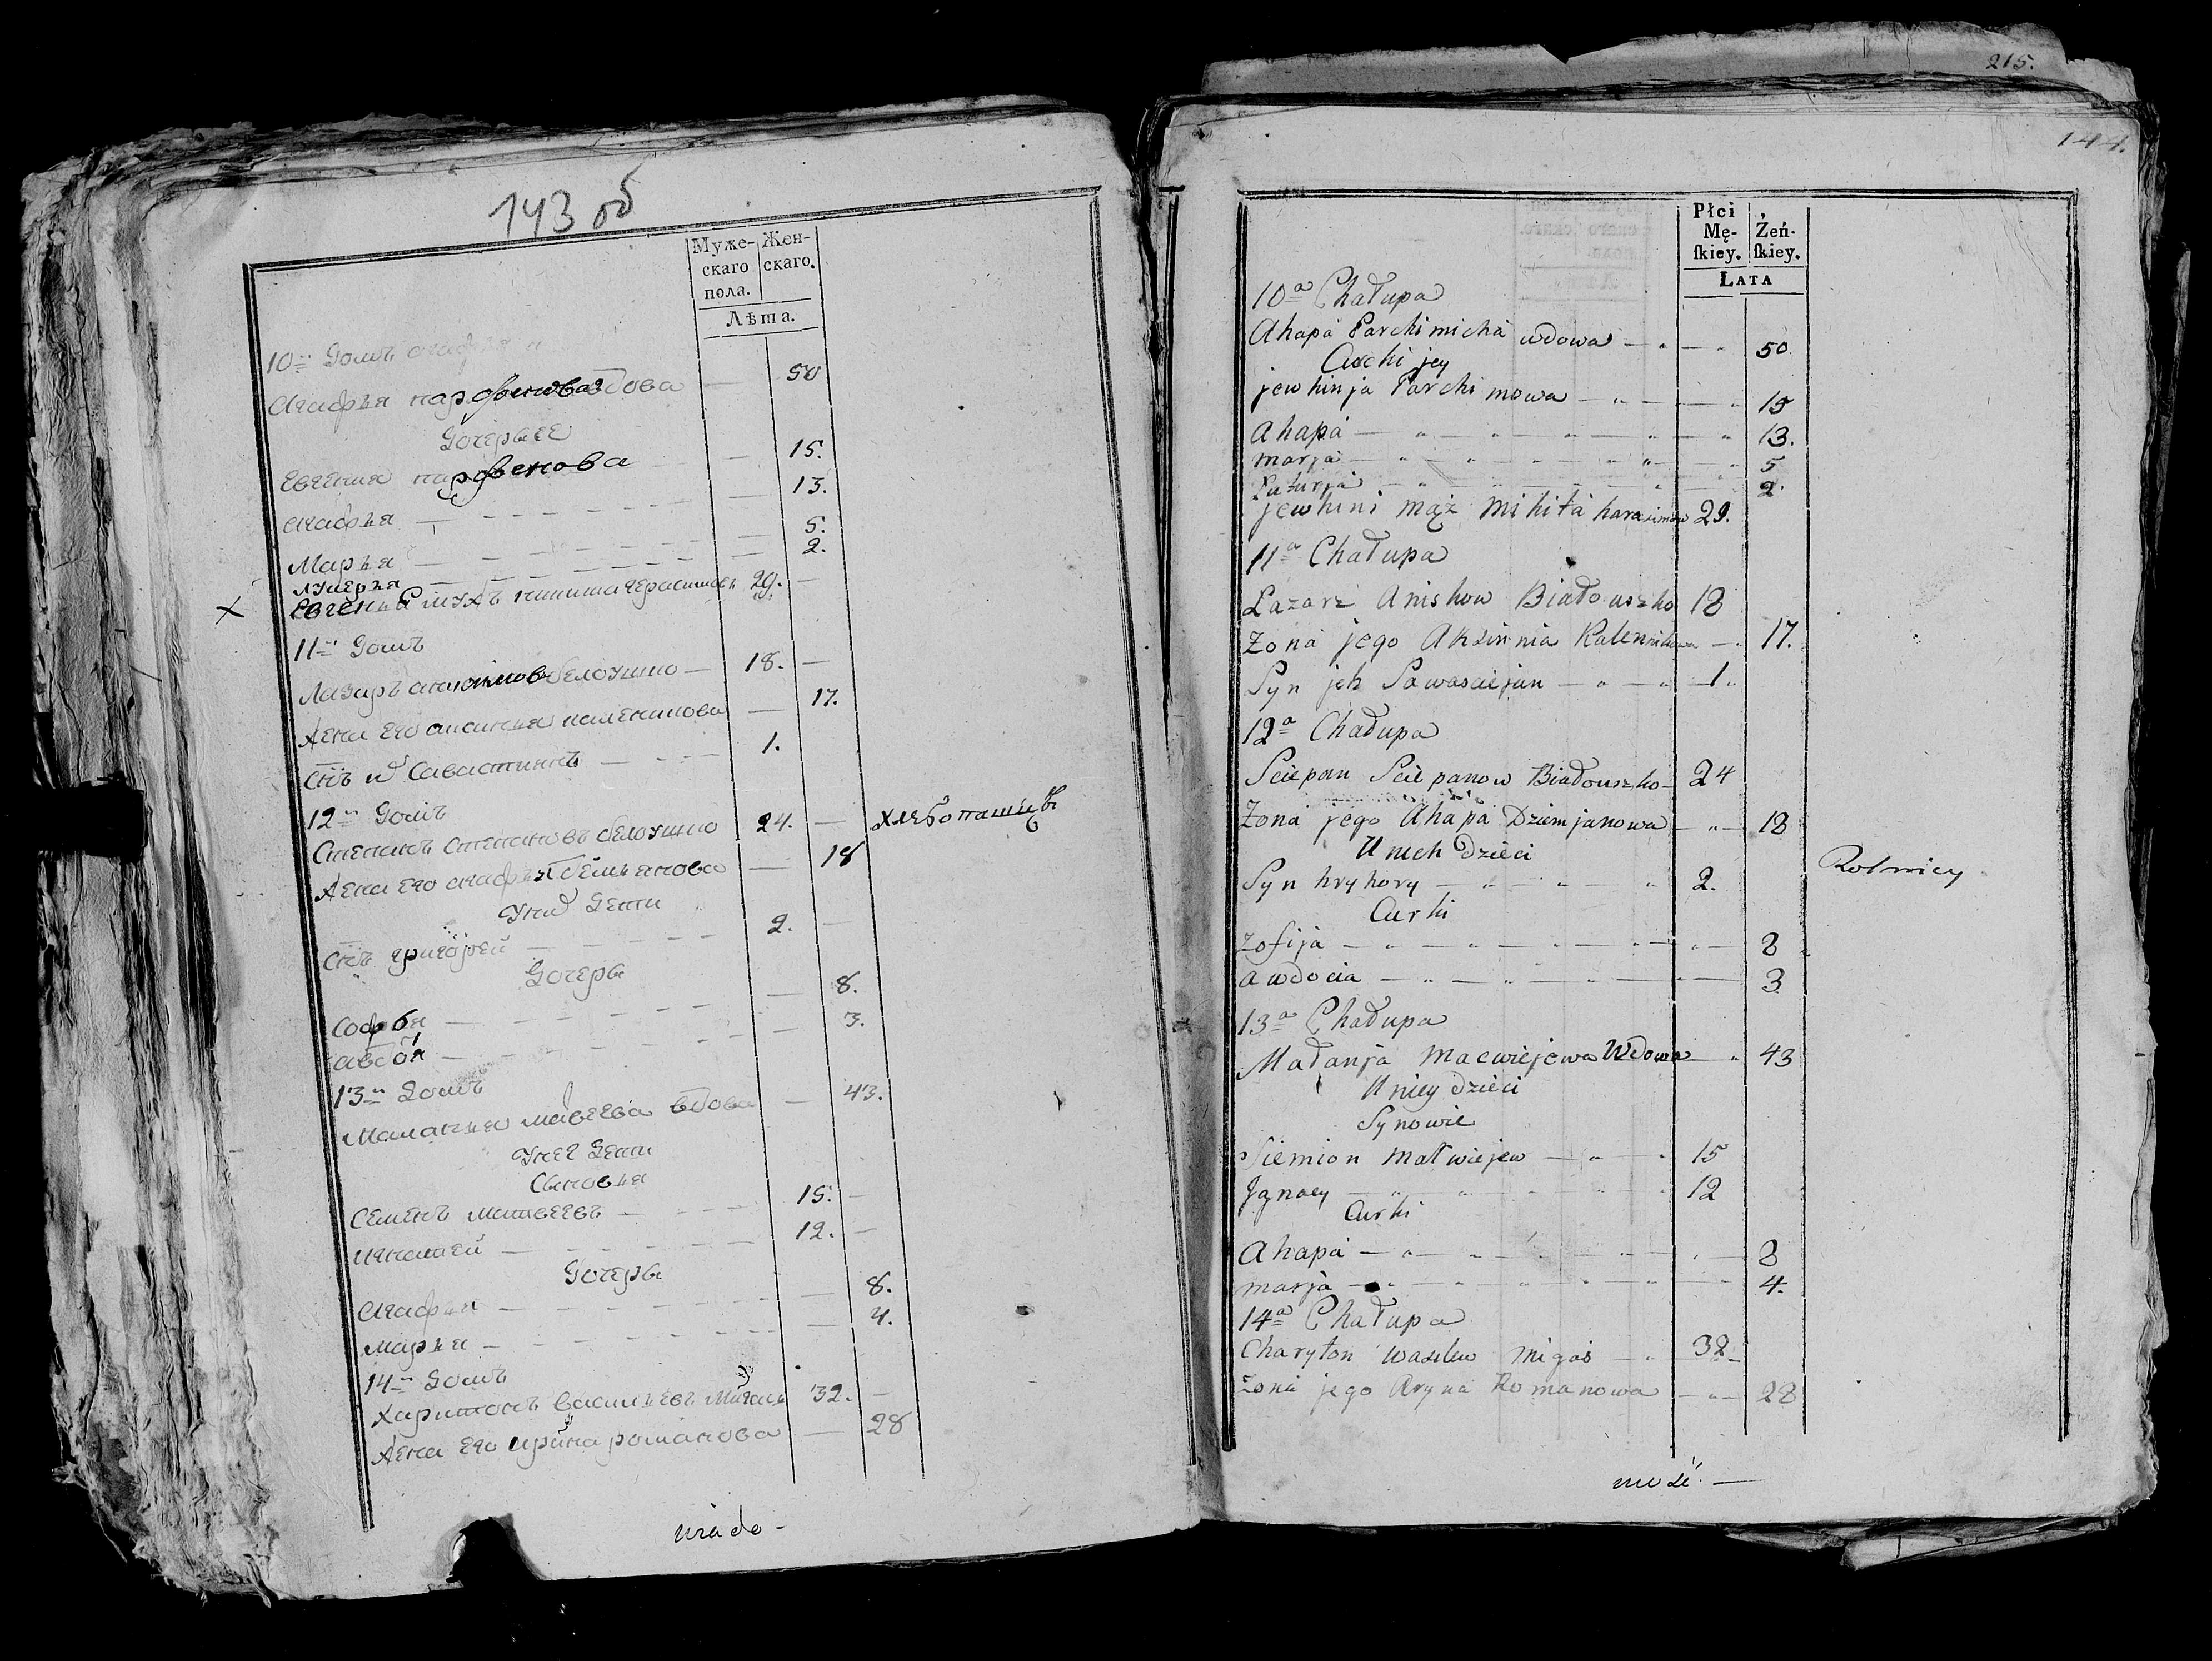 143 об
Муже-
скаго
пола.
Жен-
скаго.
Лѣта.
10й Домъ
Агафья парфенова вдова — 50
Дочерь ее
Евгения парфенова — 15.
Агафья — 13.
Марья — 5.
лукерья — 2.
Х Евгеньи мужъ никита герасимовъ 29. —
11й Домъ
Лазарь анисимовъ белоушко — 18. —
Жена его аксинья каленикова — 17.
Снъ их Савастиянъ — 1.
12й Домъ
Степанъ Степановъ белоушко 24. —
Хлебопашцы
Жена его агафья демьянова — 18
У них Дети
Снъ григорей — 2. —
Дочерь
Софья — 8.
авдо — 3.
13й Домъ
Маланья мавеева вдова — 43.
У нее Дети
Сыновья
Семенъ матвеевъ — 15. —
игнатей — 12. —
Дочерь
Агафья — 8.
Марья — 4.
14й Домъ
Харитонъ васильевъ Мигась 32. —
Жена его ирина романова — 28
215.
144.
Płci
Mę-
ſkiey.
Żeń-
ſkiey.
LATA
10a Chałupa
Ahapa Parchimicha wdowa — 50
Curki jey
jewhinja Parchimowa — 15
Ahapa — 13.
marja — 5
2.
jewhini mąż Mikita harasimow 29.
11a Chałupa
Łazarz Aniskow Białouszko 18
Zona jego Aksinnia Kalennikowa — 17.
Syn jch Sawasciejan — 1.
12a Chałupa
Sciepan Sciepanow Białouszko 24
Zona jego Ahapa Dziemjanowa — 18
U nich Dzieci
Syn hryhory — 2.
Rolnicy
Curki
Zofija — 8
awdocia — 3
13a Chałupa
Małanja Macwiejewa Wdowa — 43
U niey Dzieci
Synowie
Siemion Matwiejew — 15
Jgnacy — 12
Curki
Ahapa — 8
marja — 4.
14a Chałupa
Charyton wasilew migas — 32
Zona jego Aryna Romanowa — 28